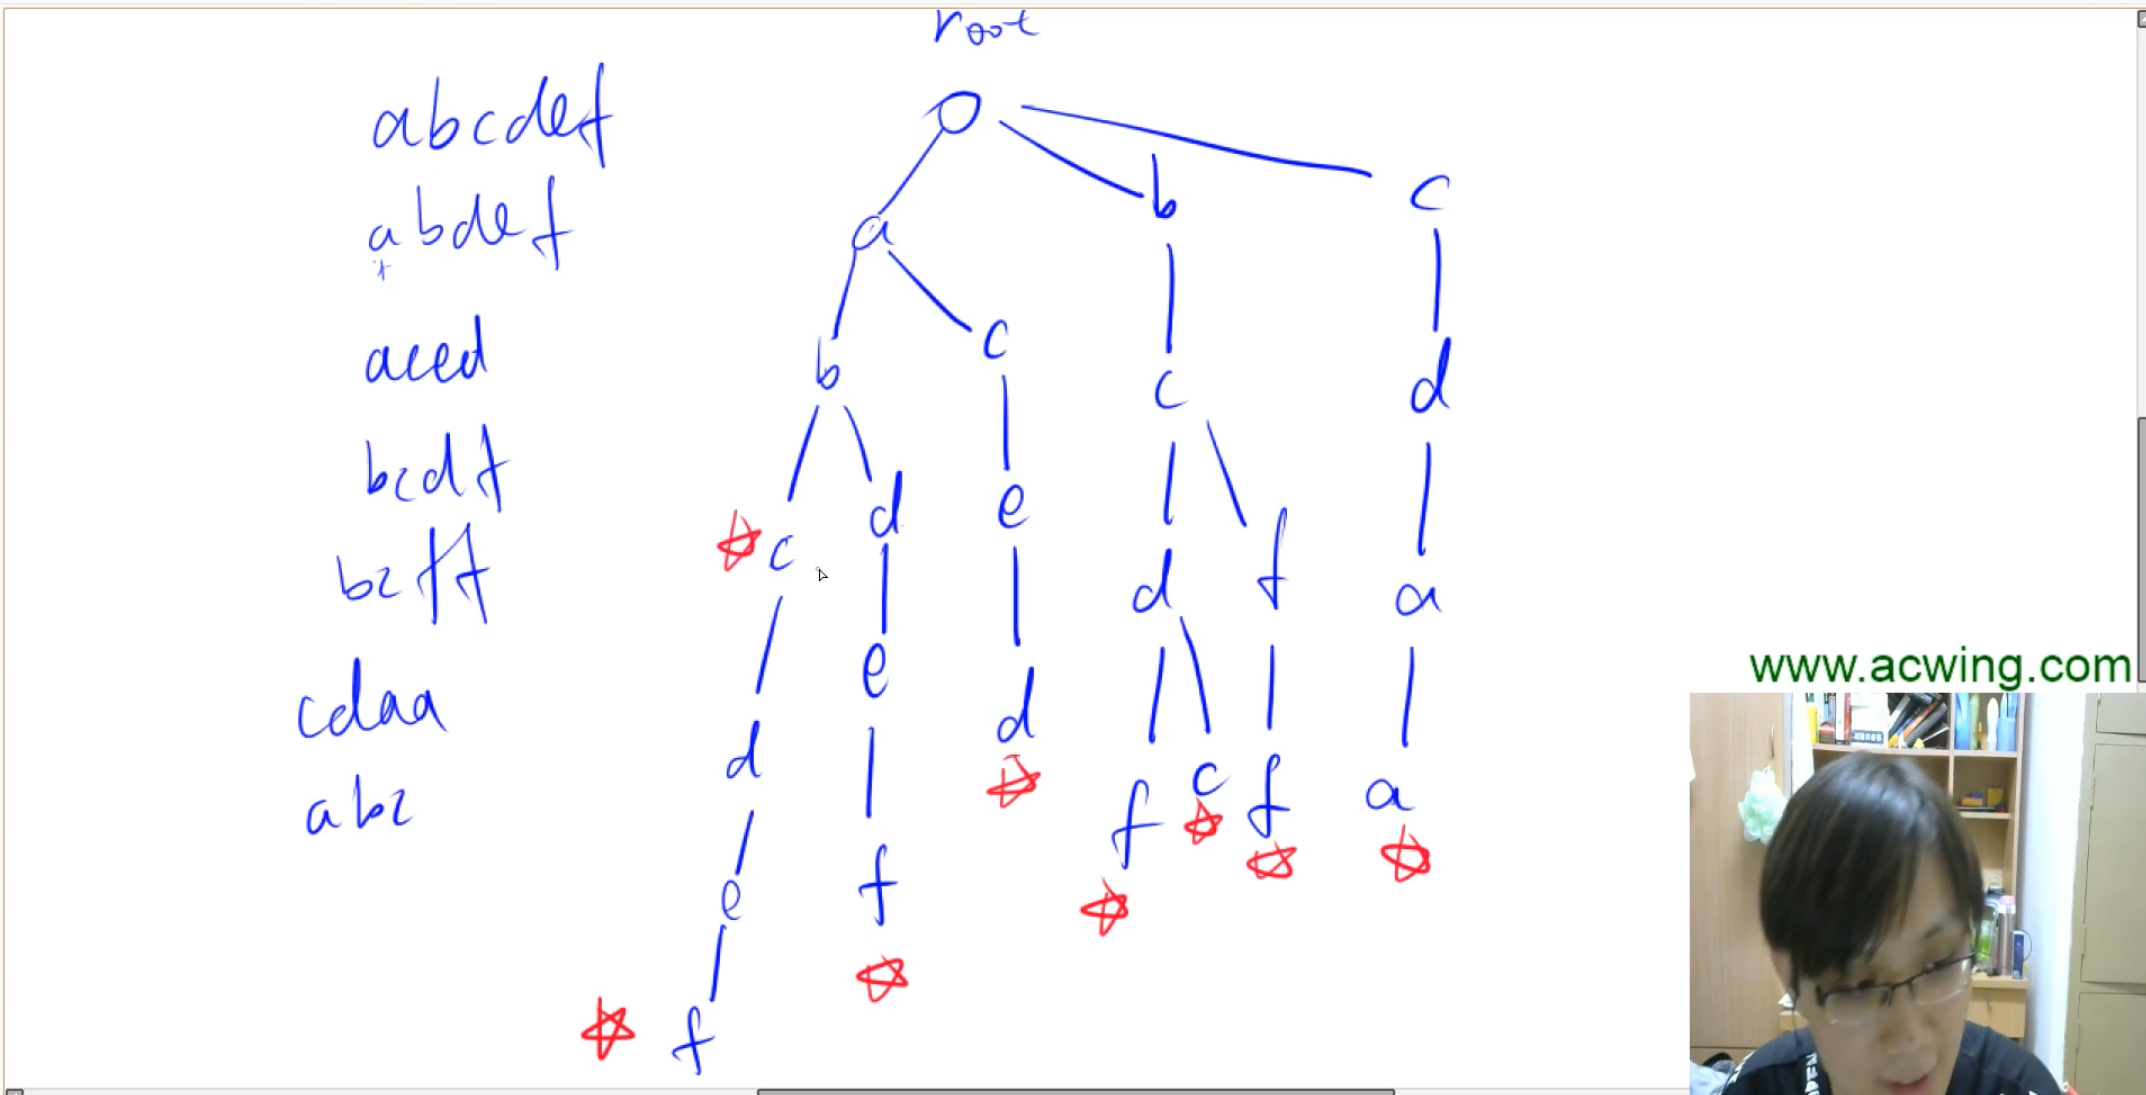 root
abcdef
abdef
aced
bcdf
bcff
cdaa
abc
a
b
c
b
c
c
d
c
d
e
d
f
a
d
e
d
f
c
f
a
e
f
f
www.acwing.com